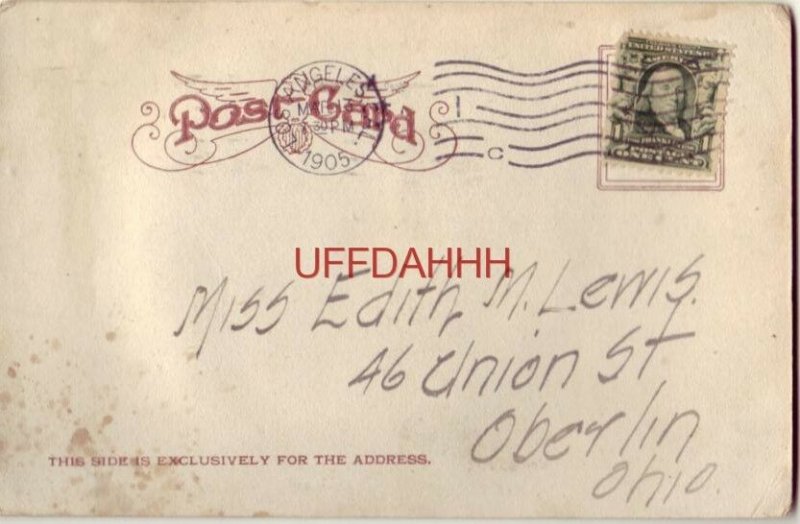 Post Card
LOS ANGELES, CAL.
1905
C
UNITED STATES
FRANKLIN
ONE CENT
UFFDAHHH
Miss Edith M. Lewis.
46 Union St
Oberlin
Ohio.
THIS SIDE IS EXCLUSIVELY FOR THE ADDRESS.